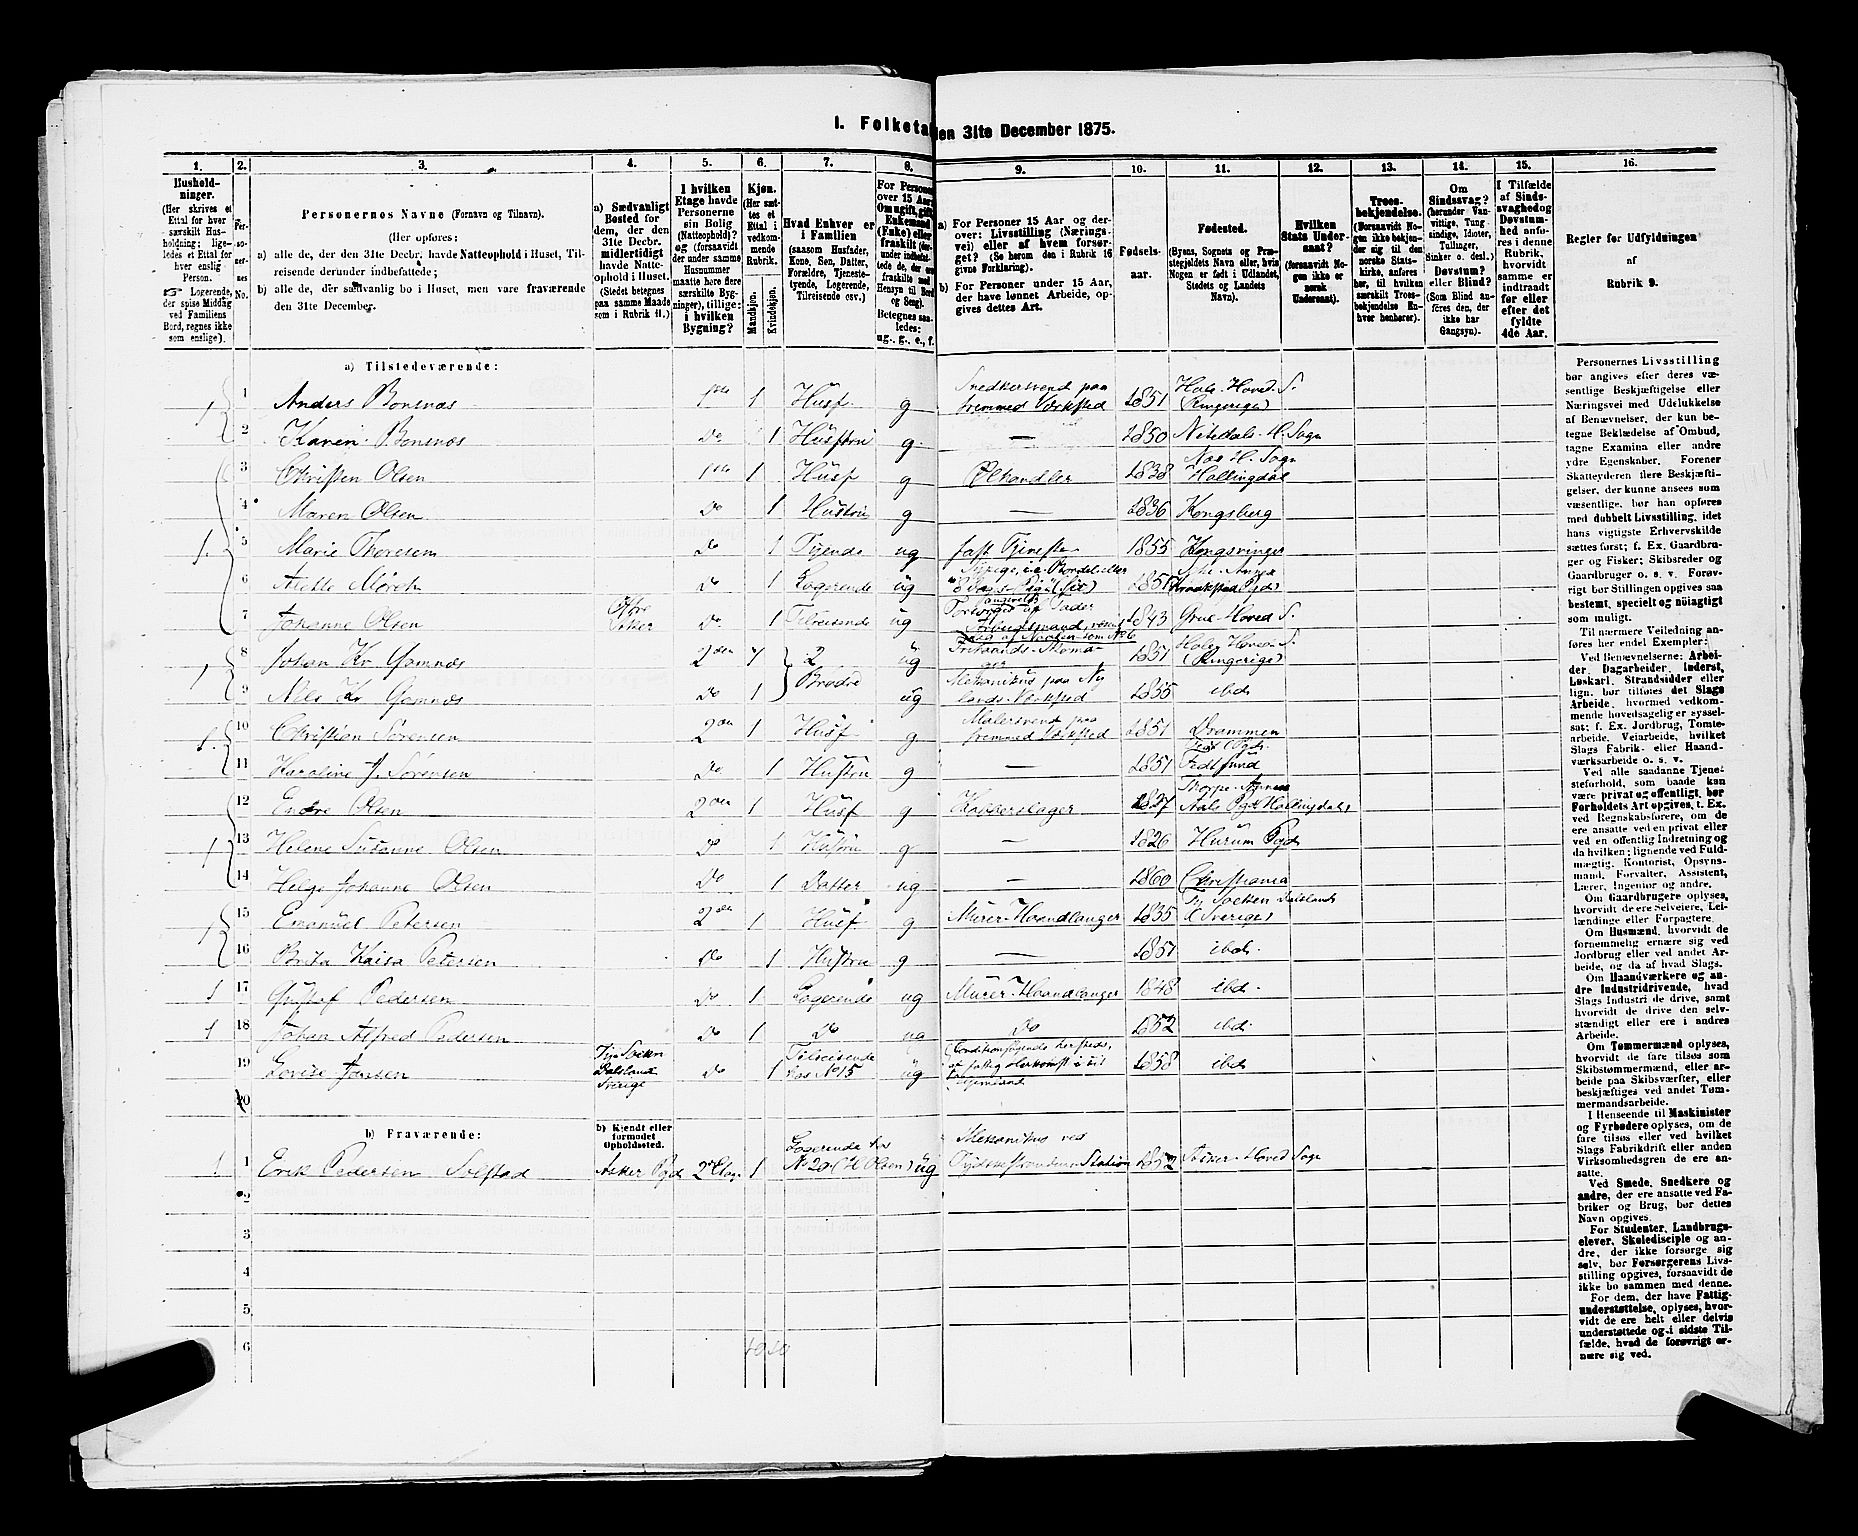 I. Folketal den 31te December 1875.
1. 2. 3. 4. 5. 6. 7. 8. 9. 10. 11. 12. 13. 14. 15. 16.
Hushold-
ninger.
(Her skrives et
Ettal for hver
særskilt Hus-
holdning; lige-
ledes et Ettal for
hver enslig
Person.
☞ Logerende,
der spise Middag
ved Familiens
Bord, regnes ikke
som enslige).
Per-
so-
ner-
nes
No.
Personernes Navne (Fornavn og Tilnavn).
(Her opføres:
a) alle de, der den 31te Decbr. havde Natteophold i Huset, Til-
reisende derunder indbefattede;
b) alle de, der sædvanlig bo i Huset, men vare fraværende
den 31te December.
a) Sædvanligt
Bosted for
dem, der den
31te Decbr.
midlertidigt
havde Natte-
ophold i Huset.
(Stedet betegnes
paa samme Maade
som i Rubrik 11.)
I hvilken
Etage havde
Personerne
sin Bolig
(Natteophold)?
og (forsaavidt
der under samme
Husnummer
maatte høre flere
særskilte Byg-
ninger), tillige:
i hvilken
Bygning?
Kjøn.
(Her sæt-
tes et
Ettal i
vedkom-
mende
Rubrik.
Mandskjøn.
Kvindekjøn.
Hvad Enhver er
i Familien
(saasom Husfader,
Kone, Søn, Datter,
Forældre, Tjeneste-
tyende, Logerende,
Tilreisende osv.)
For Personer
over 15 Aar:
Om ugift, gift,
Enkemand
(Enke) eller
fraskilt
Betegnes saa-
ledes:
ug., g., e., f.
a) For Personer 15 Aar og der-
over: Livsstilling (Nærings-
vei) eller af hvem forsør-
get? (Se herom den i Rubrik 16
givne Forklaring).
b) For Personer under 15 Aar,
der have lønnet Arbeide, op-
gives dettes Art.
Fødsels-
aar.
Fødested.
(Byens, Sognets og Præ-
stegjeldets Navn eller, hvis
Nogen er født i Udlandet,
Stedets og Landets
Navn).
Hvilken
Stats Under-
saat?
(forsaavidt No-
gen ikke er
norsk
Undersaat).
Troes-
bekjendelse.
(Forsaavidt No-
gen ikke bekjen-
der sig til den
norske Stats-
kirke, anføres
her, til hvilken
særskilt Troes-
bekjendelse En-
hver henhører).
Om
Sindssvag?
(herunder Van-
vittige, Tung
sindige, Idioter,
Tullinger,
Sinker o. desl.)
Døvstum?
eller Blind?
(Som Blind an-
føres den, der
ikke har
Gangsyn).
I Tilfælde
af Sinds-
svaghed og
Døvstum-
hed anfø-
res i denne
Rubrik,
hvorvidt
samme er
indtraadt
før eller
efter det
fyldte
4de Aar.
Regler for Udfyldningen
af
Rubrik 9.
a) Tilstedeværende:
1 1 Anders Bonsnæs 1ste 1 Husf. g Snedkersvend paa fremmed Værksted 1851 Hole Hoved S. (Ringerige)
2 Karen Bonsnæs Do 1 Hustru g — 1850 Nitedals H. Sogn
3 Christen Olsen 1ste 1 Husf g Ølhandler 1838 Næs H. Sogn Hallingdal
4 Maren Olsen Do 1 Hustru g — 1836 Kongsberg
1 5 Marie Thoresen Do 1 Tjende ug fast Tjeneste 1855 Kongsvinger
6 Do 1 Logerende ug 1851
7 Johanne Olsen Aker Do 1 Tilreisende ug 1843 Grue Hoved S.
1 8 Johan Kr. Gamnæs 2den 1 2 ug 1857 Hole Hoved S. (Ringerige)
9 Nils Kr Gamnæs Do 1 Brødre ug Mekanikus paa Nylands Værksted 1855 ibd
1 10 Christian Sørensen 2den 1 Husf g Malersvend paa fremmed Værksted 1851 Drammen
11 Karoline J. Sørensen Do 1 Hustru g — 1851
12 Endre Olsen 2den 1 Husf g Kobberslager 1827 Thorpe Annex Aals Pgd Hallingdal
1 13 Helene Susanne Olsen Do 1 Hustru g — 1826 Hurum Pgd
14 Helga Johanne Olsen Do 1 Datter ug 1860 Christiania
1 15 Emanuel Petersen 2den 1 Husf g Murer-Haandlanger 1835 Dalsland (Sverige)
16 Brita Kaisa Petersen Do 1 Hustru g — 1851 ibd.
1 17 Gustaf Pedersen Do 1 Logerende ug Murer-Haandlanger 1848 ibd.
1 18 Johan Alfred Pedersen Do 1 Do ug Do 1852 ibd.
19 Lovise Jansen Dalsland Sverige Do 1 Tilreisende hos No 15 ug 1858 ibd
20
b) Fraværende:
b) Kjendt eller
formodet
Opholdssted.
1 1 Erik Pedersen Solstad Asker Pgd 2 Etage 1 Logerende hos No 20 (H Olsen) ug Mekanikus ved Station 1852 Asker Hoved Sogn
2
3
4
5
6
Personernes Livsstilling
bør angives efter deres væ-
sentlige Beskjæftigelse eller
Næringsvei med Udelukkelse
af Benævnelser, der kun be-
tegne Bekledning af Ombud,
tagne Examina eller andre
ydre Egenskaber. Forener
Skatteyderen flere Beskjæfti-
gelser, der kunne ansees som
væsentlige, bør han opføres
med dobbelt Livsstilling, idet
hans vigtigste Erhvervskilde
sættes først; f. Ex. Gaardbru-
ger og Fisker; Skibsreder og
Gaardbruger o. s. v. Forøv-
rigt bør Stillingen opgives saa
bestemt, specielt og nøiagtigt
som muligt.
Til nærmere Veiledning an-
føres her endel Exempler:
Ved Benævnelserne: Arbei-
der, Dagarbeider, Inderst,
Løskarl, Strandsidder eller
lign. bør tilføies det Slags
Arbeide, hvormed vedkom-
mende hovedsagelig er syssel-
sat; f. Ex. Jordbrug, Tomte-
arbeide, Veiarbeide, hvilket
Slags Fabrik- eller Haand-
værksarbeide o. s. v.
Ved alle saadanne Tjene-
steforhold, som baade kan
være privat og offentligt, bør
Forholdets Art opgives, t. Ex.
ved Regnskabsførere, om de
ere ansatte ved en privat eller
en offentlig Indretning og
da hvilken; lignende ved Fuld-
mægtig, Kontorist, Opsyns-
mand, Forvalter, Assistent,
Lærer, Ingeniør og andre.
Om Gaardbrugere oplyses,
hvorvidt de ere Selveiere, Lei-
lændinge eller Forpagtere.
Om Husmænd, hvorvidt de
fornemmelig ernære sig ved
Jordbrug eller ved andet Ar-
beide, og da af hvad Slags.
Om Haandværkere og an-
dre Industridrivende, hvad
Slags Industri de drive, samt
hvorvidt de drive den selv-
stændigt eller ere i andres
Arbeide.
Om Tømmermænd oplyses,
hvorvidt de fare tilsøs som
Skibstømmermænd, eller ar-
beide paa Skibsværfter, eller
beskjæftiges ved andet Tøm-
mermandsarbeide.
I Henseende til Maskinister
og Fyrbødere oplyses, om de
fare tilsøs eller ved hvilket
Slags Fabrikdrift eller anden
Virksomhedsgren de ere an-
satte.
Ved Smede, Snedkere og
andre, der ere ansatte ved Fa-
briker og Brug, bør dettes
Navn opgives.
For Studenter, Landbrugs-
elever, Skoledisciple og an-
dre, der ikke forsørge sig
selv, bør Forsørgerens Livs-
stilling opgives, forsaavidt de
ikke bo sammen med denne.
For dem, der have Fattig-
understøttelse, oplyses, hvor-
vidt de ere helt eller delvis
understøttede og i sidste Til-
fælde, hvad de forøvrigt er-
nære sig ved.